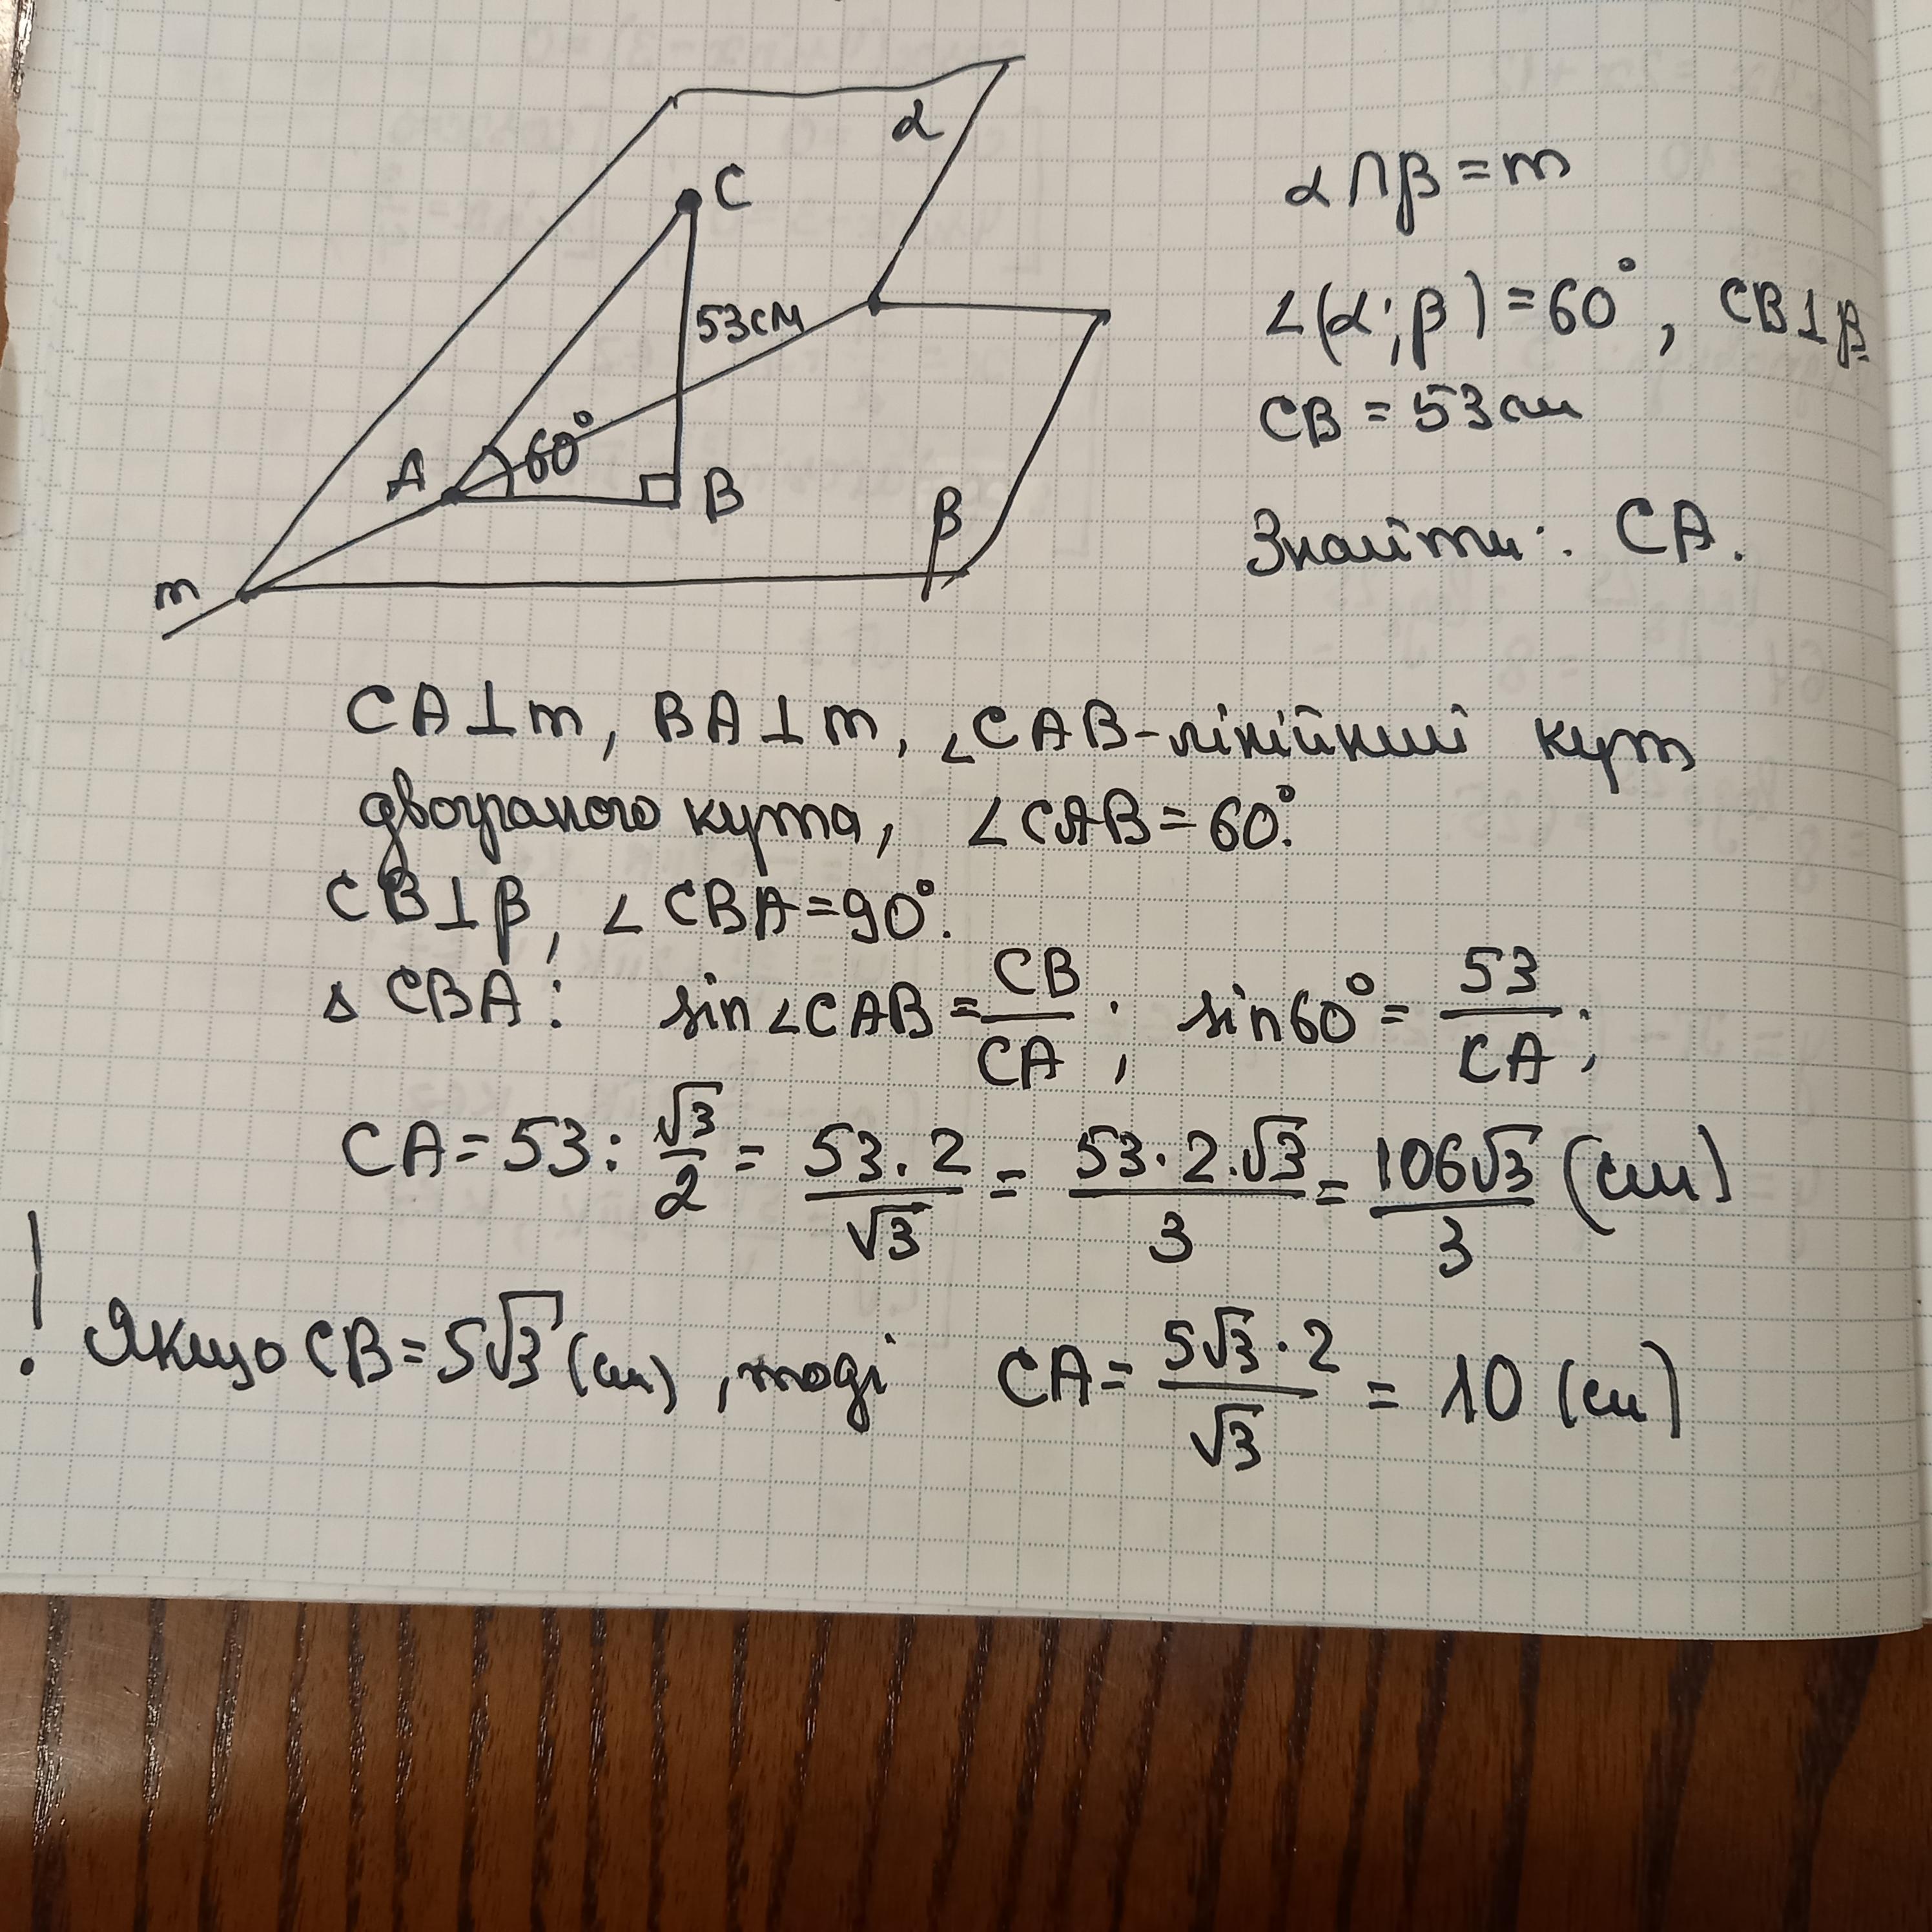 α
C
53см
A
60°
B
β
m
α∩β=m
∠(α;β)=60°, CB⊥β
CB=53см
Знайти: CA.
CA⊥m, BA⊥m, ∠CAB-лінійний кут
двограного кута, ∠CAB=60°.
CB⊥β, ∠CBA=90°.
Δ CBA: sin∠CAB=CB/CA; sin60°=53/CA;
CA=53:√3/2=53·2/√3=53·2·√3/3=106√3/3 (см)
! Якщо CB=5√3(см), тоді CA=5√3·2/√3=10 (см)